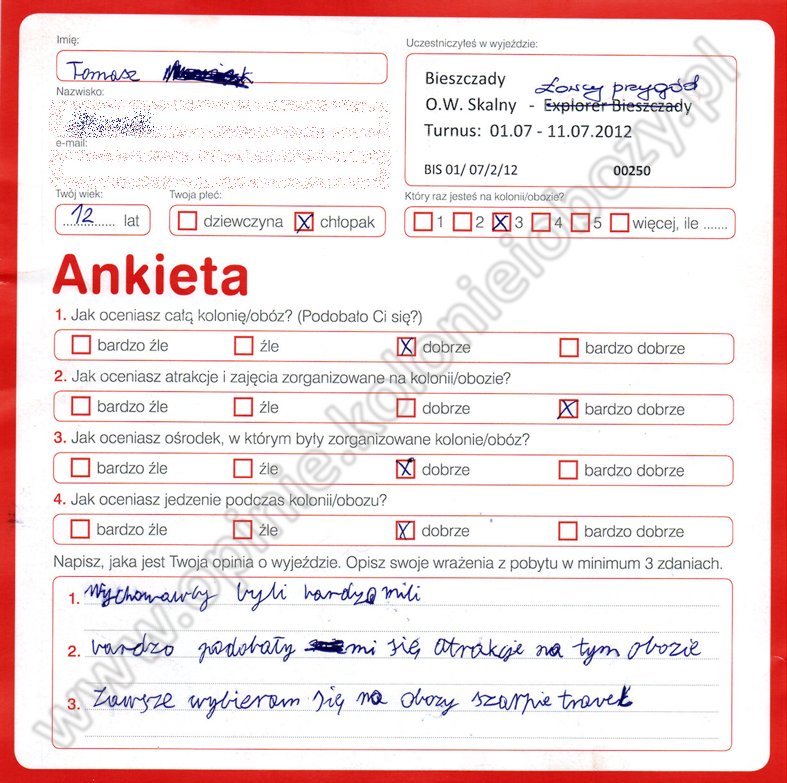 Imię:
Tomasz
Nazwisko:
e-mail:
Twój wiek:
12 lat
Twoja płeć:
dziewczyna X chłopak
Uczestniczyłeś w wyjeździe:
Bieszczady Łowcy przygód
O.W. Skalny - Explorer Bieszczady
Turnus: 01.07 - 11.07.2012
BIS 01/ 07/2/12 00250
Który raz jesteś na kolonii/obozie?
1 2 X 3 4 5 więcej, ile .......
Ankieta
1. Jak oceniasz całą kolonię/obóz? (Podobało Ci się?)
bardzo źle źle X dobrze bardzo dobrze
2. Jak oceniasz atrakcje i zajęcia zorganizowane na kolonii/obozie?
bardzo źle źle dobrze X bardzo dobrze
3. Jak oceniasz ośrodek, w którym były zorganizowane kolonie/obóz?
bardzo źle źle X dobrze bardzo dobrze
4. Jak oceniasz jedzenie podczas kolonii/obozu?
bardzo źle źle X dobrze bardzo dobrze
Napisz, jaka jest Twoja opinia o wyjeździe. Opisz swoje wrażenia z pobytu w minimum 3 zdaniach.
1. Wychowawcy byli bardzo mili
2. bardzo podobały mi się atrakcje na tym obozie
3. Zawsze wybieram się na obozy szarpie travel
www.opinie.kolonieiobozy.pl